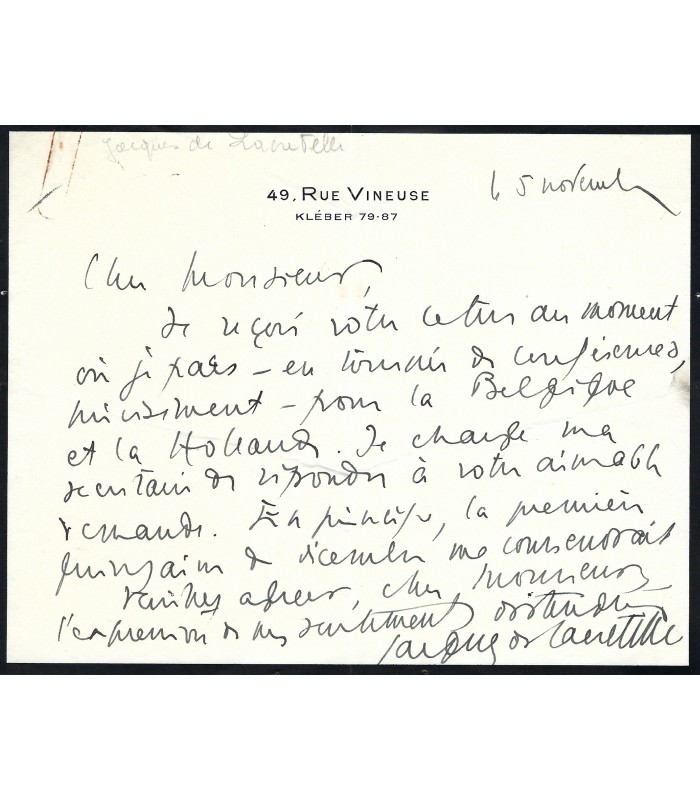 Jacques de Lacretelle
49, RUE VINEUSE
KLÉBER 79-87
le 5 novembre
Cher Monsieur,
Je reçois votre lettre au moment
où je pars – en tournée de conférences,
précisément – pour la Belgique
et la Hollande. Je charge ma
secrétaire de répondre à votre aimable
demande. En principe, la première
quinzaine de décembre me conviendrait
Veuillez agréer, cher Monsieur
l'expression de mes sentiments distingués
Jacques de Lacretelle